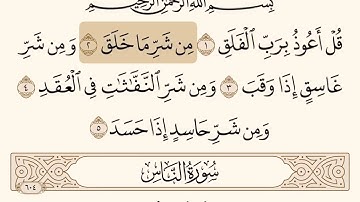 بِسْمِ اللَّهِ الرَّحْمَٰنِ الرَّحِيمِ
قُلْ أَعُوذُ بِرَبِّ الْفَلَقِ ١ مِن شَرِّ مَا خَلَقَ ٢ وَمِن شَرِّ
غَاسِقٍ إِذَا وَقَبَ ٣ وَمِن شَرِّ النَّفَّاثَاتِ فِي الْعُقَدِ ٤
وَمِن شَرِّ حَاسِدٍ إِذَا حَسَدَ ٥
سُورَةُ النَّاسِ
٦٠٤